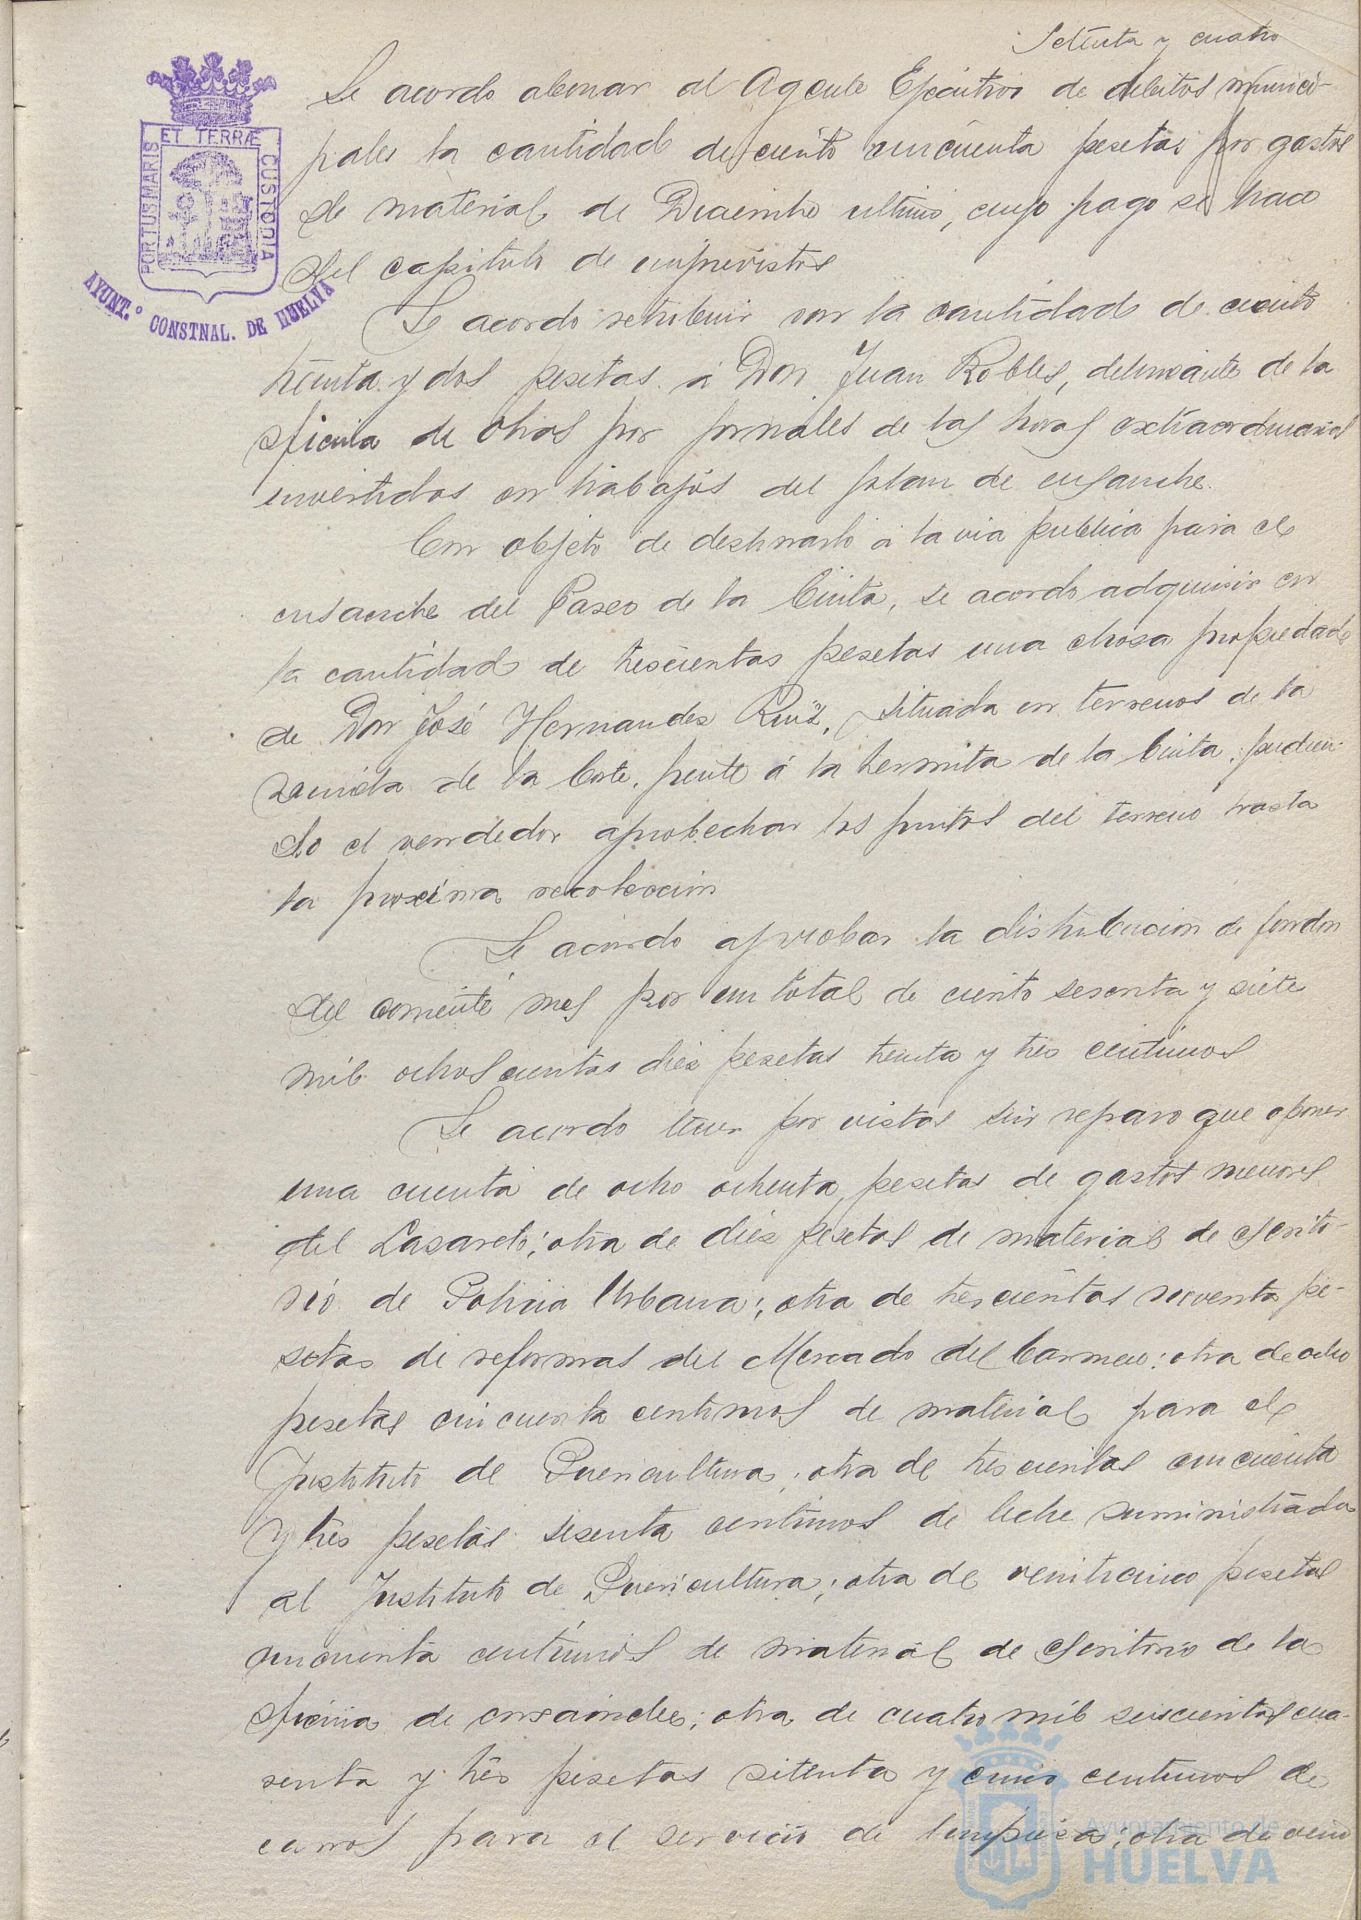 Setenta y cuatro
Se acordo abonar al Agente Ejecutivo de debitos munici-
pales la cantidad de ciento cincuenta pesetas por gastos
de material de Diciembre ultimo, cuyo pago se hace
del capitulo de imprevistos
Se acordo retribuir con la cantidad de ciento
treinta y dos pesetas a Don Juan Robles, delineante de la
oficina de obras por jornales de las horas extraordinarias
invertidas en trabajos del plan de ensanche.
Con objeto de destinarlo á la via publica para el
ensanche del Paseo de la Cinta, se acordo adquirir en
la cantidad de trescientas pesetas una chosa propiedad
de Don José Hernandez Ruiz, situada en terrenos de la
de la Corte, frente á la hermita de la Cinta, pudien-
do el vendedor aprobechar los frutos del terreno hasta
la proxima recoleccion
Se acordo aprobar la distribucion de fondos
del corriente mes por un total de ciento sesenta y siete
mil ochocientas diez pesetas treinta y tres centimos
Se acordo tener por vistas sin reparo que oponer
una cuenta de ocho ochenta pesetas de gastos menores
del Lazareto; otra de diez pesetas de material de escrito-
rio de Policia Urbana; otra de trescientas noventa pe-
setas de reformas del Mercado del Carmen; otra de ocho
pesetas cincuenta centimos de material para el
Instituto de Puericultura; otra de trescientas cincuenta
y tres pesetas sesenta centimos de leche suministrada
al Instituto de Puericultura; otra de veinticinco pesetas
cincuenta centimos de material de escritorio de la
oficina de ensanche; otra de cuatro mil seiscientas cua-
renta y tres pesetas setenta y cinco centimos de
carros para el servicio de limpieza; otra de vein
PORTUS MARIS ET TERRÆ CUSTODIA
AYUNT.º CONSTNAL. DE HUELVA
Ayuntamiento de
HUELVA